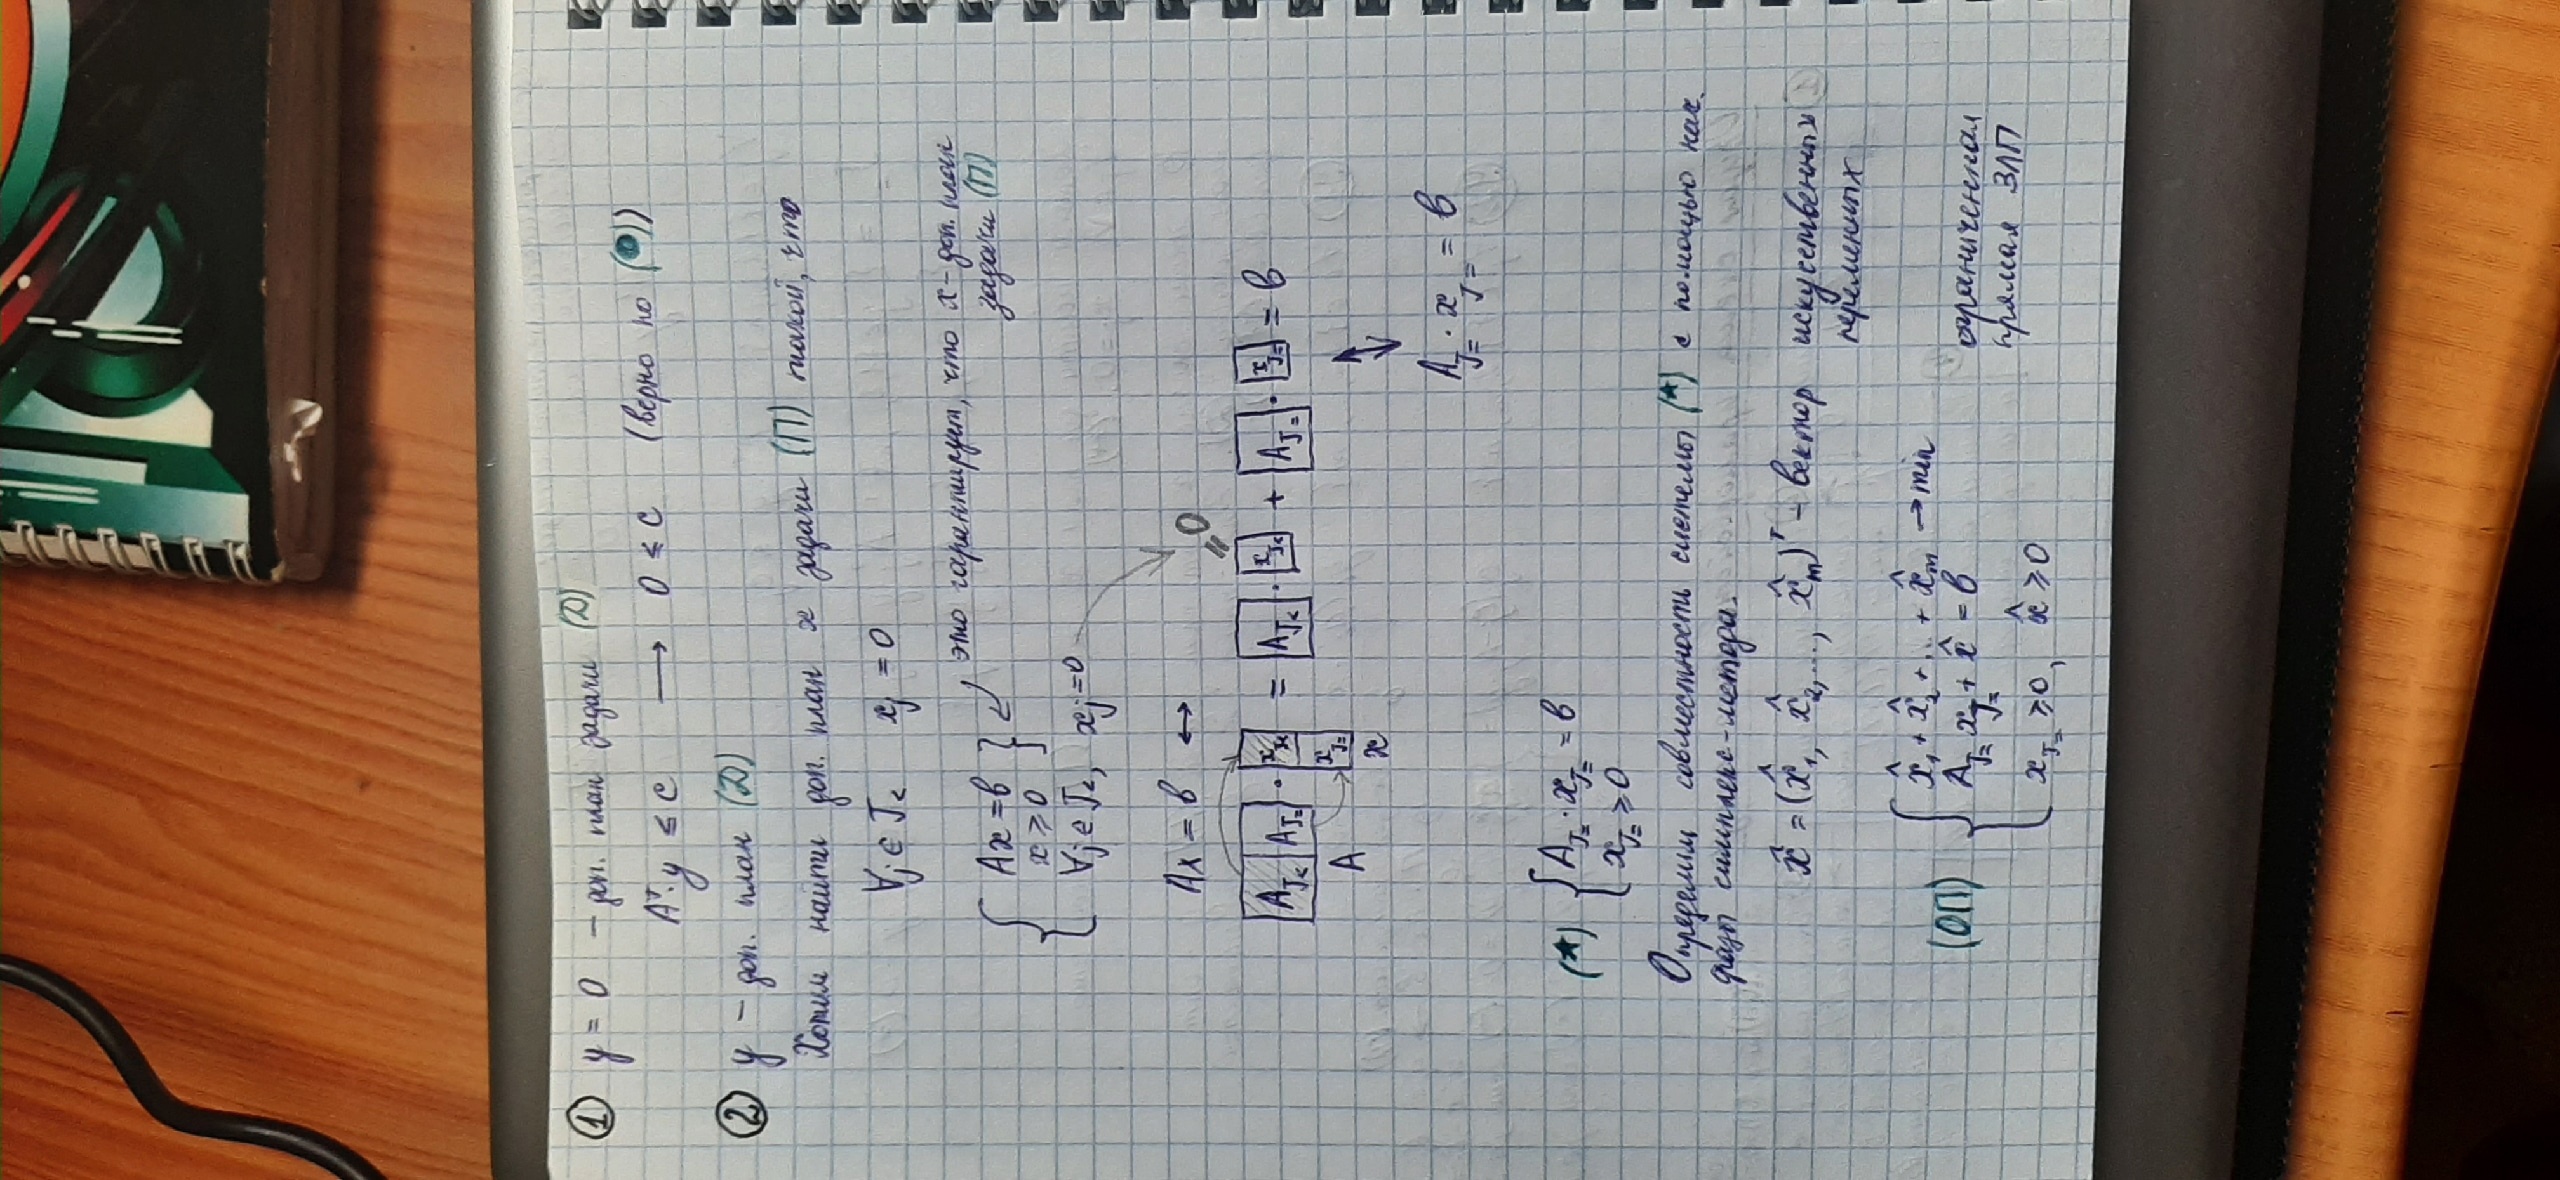 ① y = 0 – доп. план задачи (D)
Aᵀ·y ≤ c ⟶ 0 ≤ c (верно по (●))
② y – доп. план (D)
Хотим найти доп. план x задачи (П) такой, что
∀j ∈ J< xj = 0
это гарантирует, что x – доп. план
задачи (П)
Ax = b
x ≥ 0
∀j ∈ J<, xj = 0
Ax = b ↔
= 0
AJ< AJ= · xJ< xJ= = AJ< · xJ< + AJ= · xJ= = b
A
x
AJ= · xJ= = b
(★) { AJ= · xJ= = b
xJ= ≥ 0
Определим совместность системы (★) с помощью нач.
фазы симплекс-метода.
x̂ = (x̂₁, x̂₂, ..., x̂ₘ)ᵀ – вектор искусственных
переменных
x̂₁ + x̂₂ + ... + x̂ₘ → min
(ОП) { AJ= xJ= + x̂ = b ограниченная
прямая ЗЛП
xJ= ≥ 0, x̂ ≥ 0